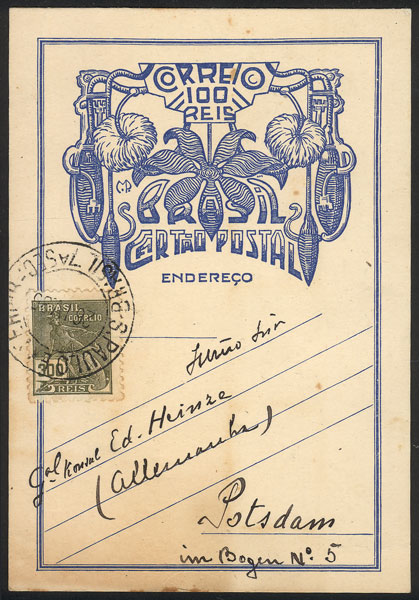 CORREIO
100
REIS
BRASIL
CARTÃO POSTAL
ENDEREÇO
BRASIL
CORREIO
300
REIS
S. PAULO
Gal Konsul Ed. Heinze
(Allemanha)
Potsdam
im Bogen No. 5